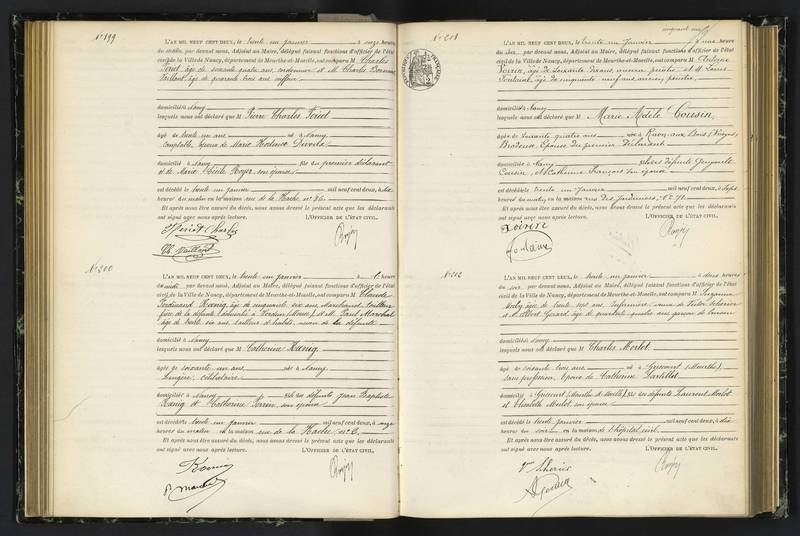 N° 199
L'AN MIL NEUF CENT DEUX, le trente un janvier à onze heures
du matin par devant nous, Adjoint au Maire, délégué faisant fonctions d'officier de l'état
civil de la Ville de Nancy, département de Meurthe-et-Moselle, ont comparu M Charles
âgé de soixante quatre ans, et M Charles
âgé de quarante trois ans coiffeur
domiciliés à Nancy
lesquels nous ont déclaré que M Pierre Charles
âgé de trente un ans né à Nancy
comptable, époux de Marie Hortense
domicilié à Nancy fils du premier déclarant
et de Marie Cécile Royer, son épouse
est décédé le trente un janvier mil neuf cent deux, à dix
heures du matin en la maison rue de la Hache n° 86.
Et après nous être assuré du décès, nous avons dressé le présent acte que les déclarants
ont signé avec nous après lecture. L'OFFICIER DE L'ÉTAT CIVIL.
N° 200
L'AN MIL NEUF CENT DEUX, le trente un janvier à heure
du par devant nous, Adjoint au Maire, délégué faisant fonctions d'officier de l'état
civil de la Ville de Nancy, département de Meurthe-et-Moselle, ont comparu M Claude
Ferdinand Kœnig, âgé de cinquante six ans, Marchand tailleur
frère de la défunte, domicilié à Verdun (Meuse) et M Paul Marchal
âgé de trente six ans, tailleur d'habits, neveu de la défunte
domicilié à Nancy
lesquels nous ont déclaré que M Catherine Kœnig
âgée de soixante un ans née à Nancy
lingère, célibataire
domiciliée à Nancy fille des défunts Jean Baptiste
Kœnig et Catherine Perrin, son épouse
est décédée le trente un janvier mil neuf cent deux, à onze
heures du matin en la maison rue de la Hache n°
Et après nous être assuré du décès, nous avons dressé le présent acte que les déclarants
ont signé avec nous après lecture. L'OFFICIER DE L'ÉTAT CIVIL.
Kœnig
P. Marchal
N° 201
L'AN MIL NEUF CENT DEUX, le trente un janvier à une heure
du soir par devant nous, Adjoint au Maire, délégué faisant fonctions d'officier de l'état
civil de la Ville de Nancy, département de Meurthe-et-Moselle, ont comparu M
Voirin, âgé de soixante dix ans, ancien peintre et M Louis
âgé de cinquante neuf ans, ancien peintre,
domiciliés à Nancy
lesquels nous ont déclaré que M Marie Adèle Cousin,
âgée de soixante quatre ans née à Raon aux Bois (Vosges)
Brodeuse, Épouse du premier Déclarant
domiciliée à Nancy fille des défunts
Cousin, et Catherine François son épouse
est décédée le trente un janvier mil neuf cent deux, à sept
heures du matin, en la maison rue des Jardiniers, N° 71.
Et après nous être assuré du décès, nous avons dressé le présent acte que les déclarants
ont signé avec nous après lecture. L'OFFICIER DE L'ÉTAT CIVIL.
Voirin
N° 202
L'AN MIL NEUF CENT DEUX, le trente un janvier à deux heures
du soir par devant nous, Adjoint au Maire, délégué faisant fonctions d'officier de l'état
civil de la Ville de Nancy, département de Meurthe-et-Moselle, ont comparu M
âgée de trente sept ans, Infirmière
et M Albert Gérard âgé de quarante quatre ans garçon de bureau
domiciliés à Nancy
lesquels nous ont déclaré que M Charles Morlot
âgé de soixante trois ans né à Griscourt (Meurthe),
sans profession, époux de Catherine
domicilié à Griscourt (Meurthe et Moselle), fils des défunts Laurent Morlot
et Elisabeth Morlot, son épouse
est décédé le trente janvier mil neuf cent deux, à dix
heures du soir en la maison de l'hôpital civil.
Et après nous être assuré du décès, nous avons dressé le présent acte que les déclarants
ont signé avec nous après lecture. L'OFFICIER DE L'ÉTAT CIVIL.